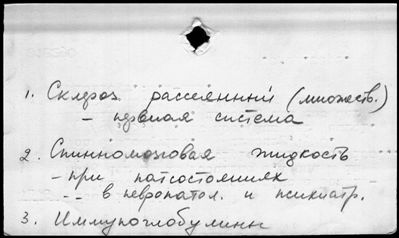 1. Склероз рассеянный (множеств.)
- нервная система
2. Спинномозговая жидкость
- при патсостояниях
- - в невропатол. и психиатр.
3. Иммуноглобулины